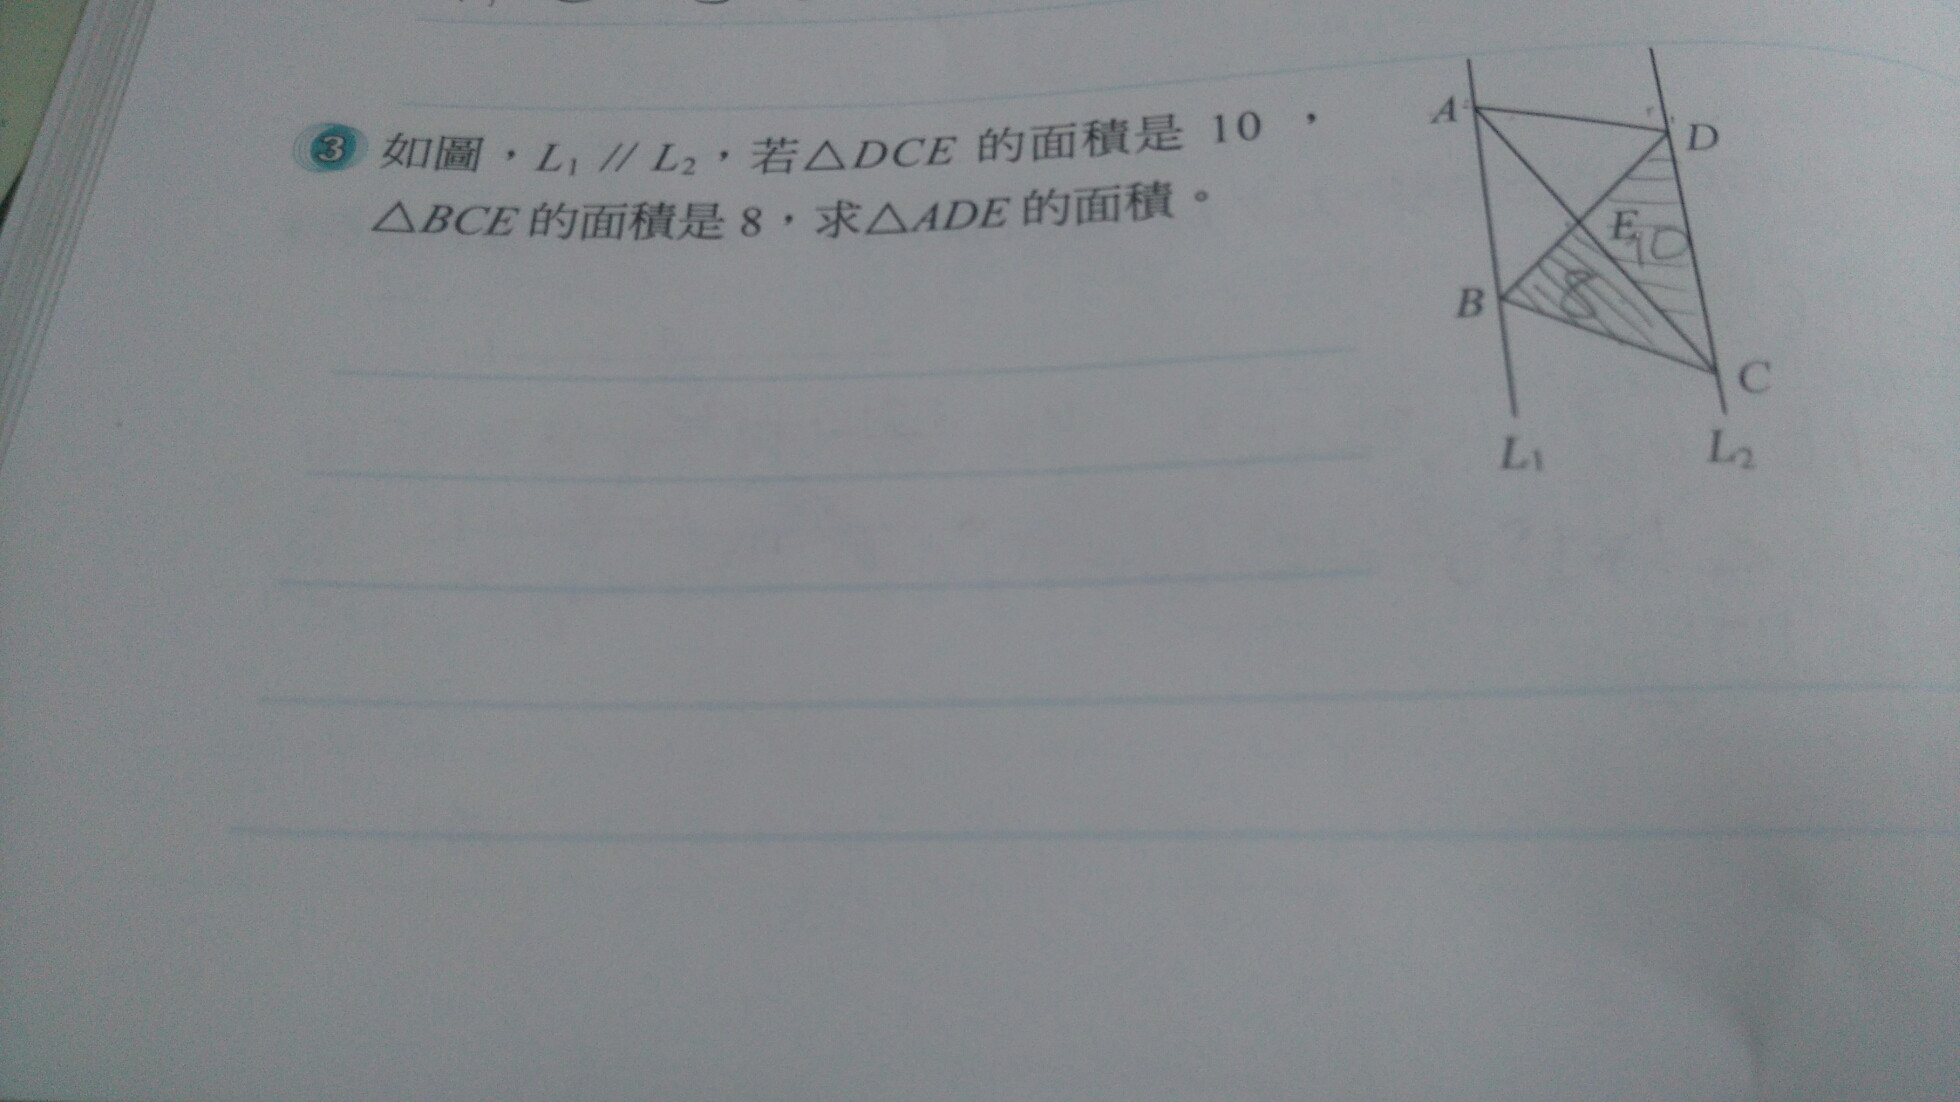 3 如圖，L₁ // L₂，若△DCE 的面積是 10，
△BCE 的面積是 8，求△ADE 的面積。
A
D
E
10
8
B
C
L₁
L₂